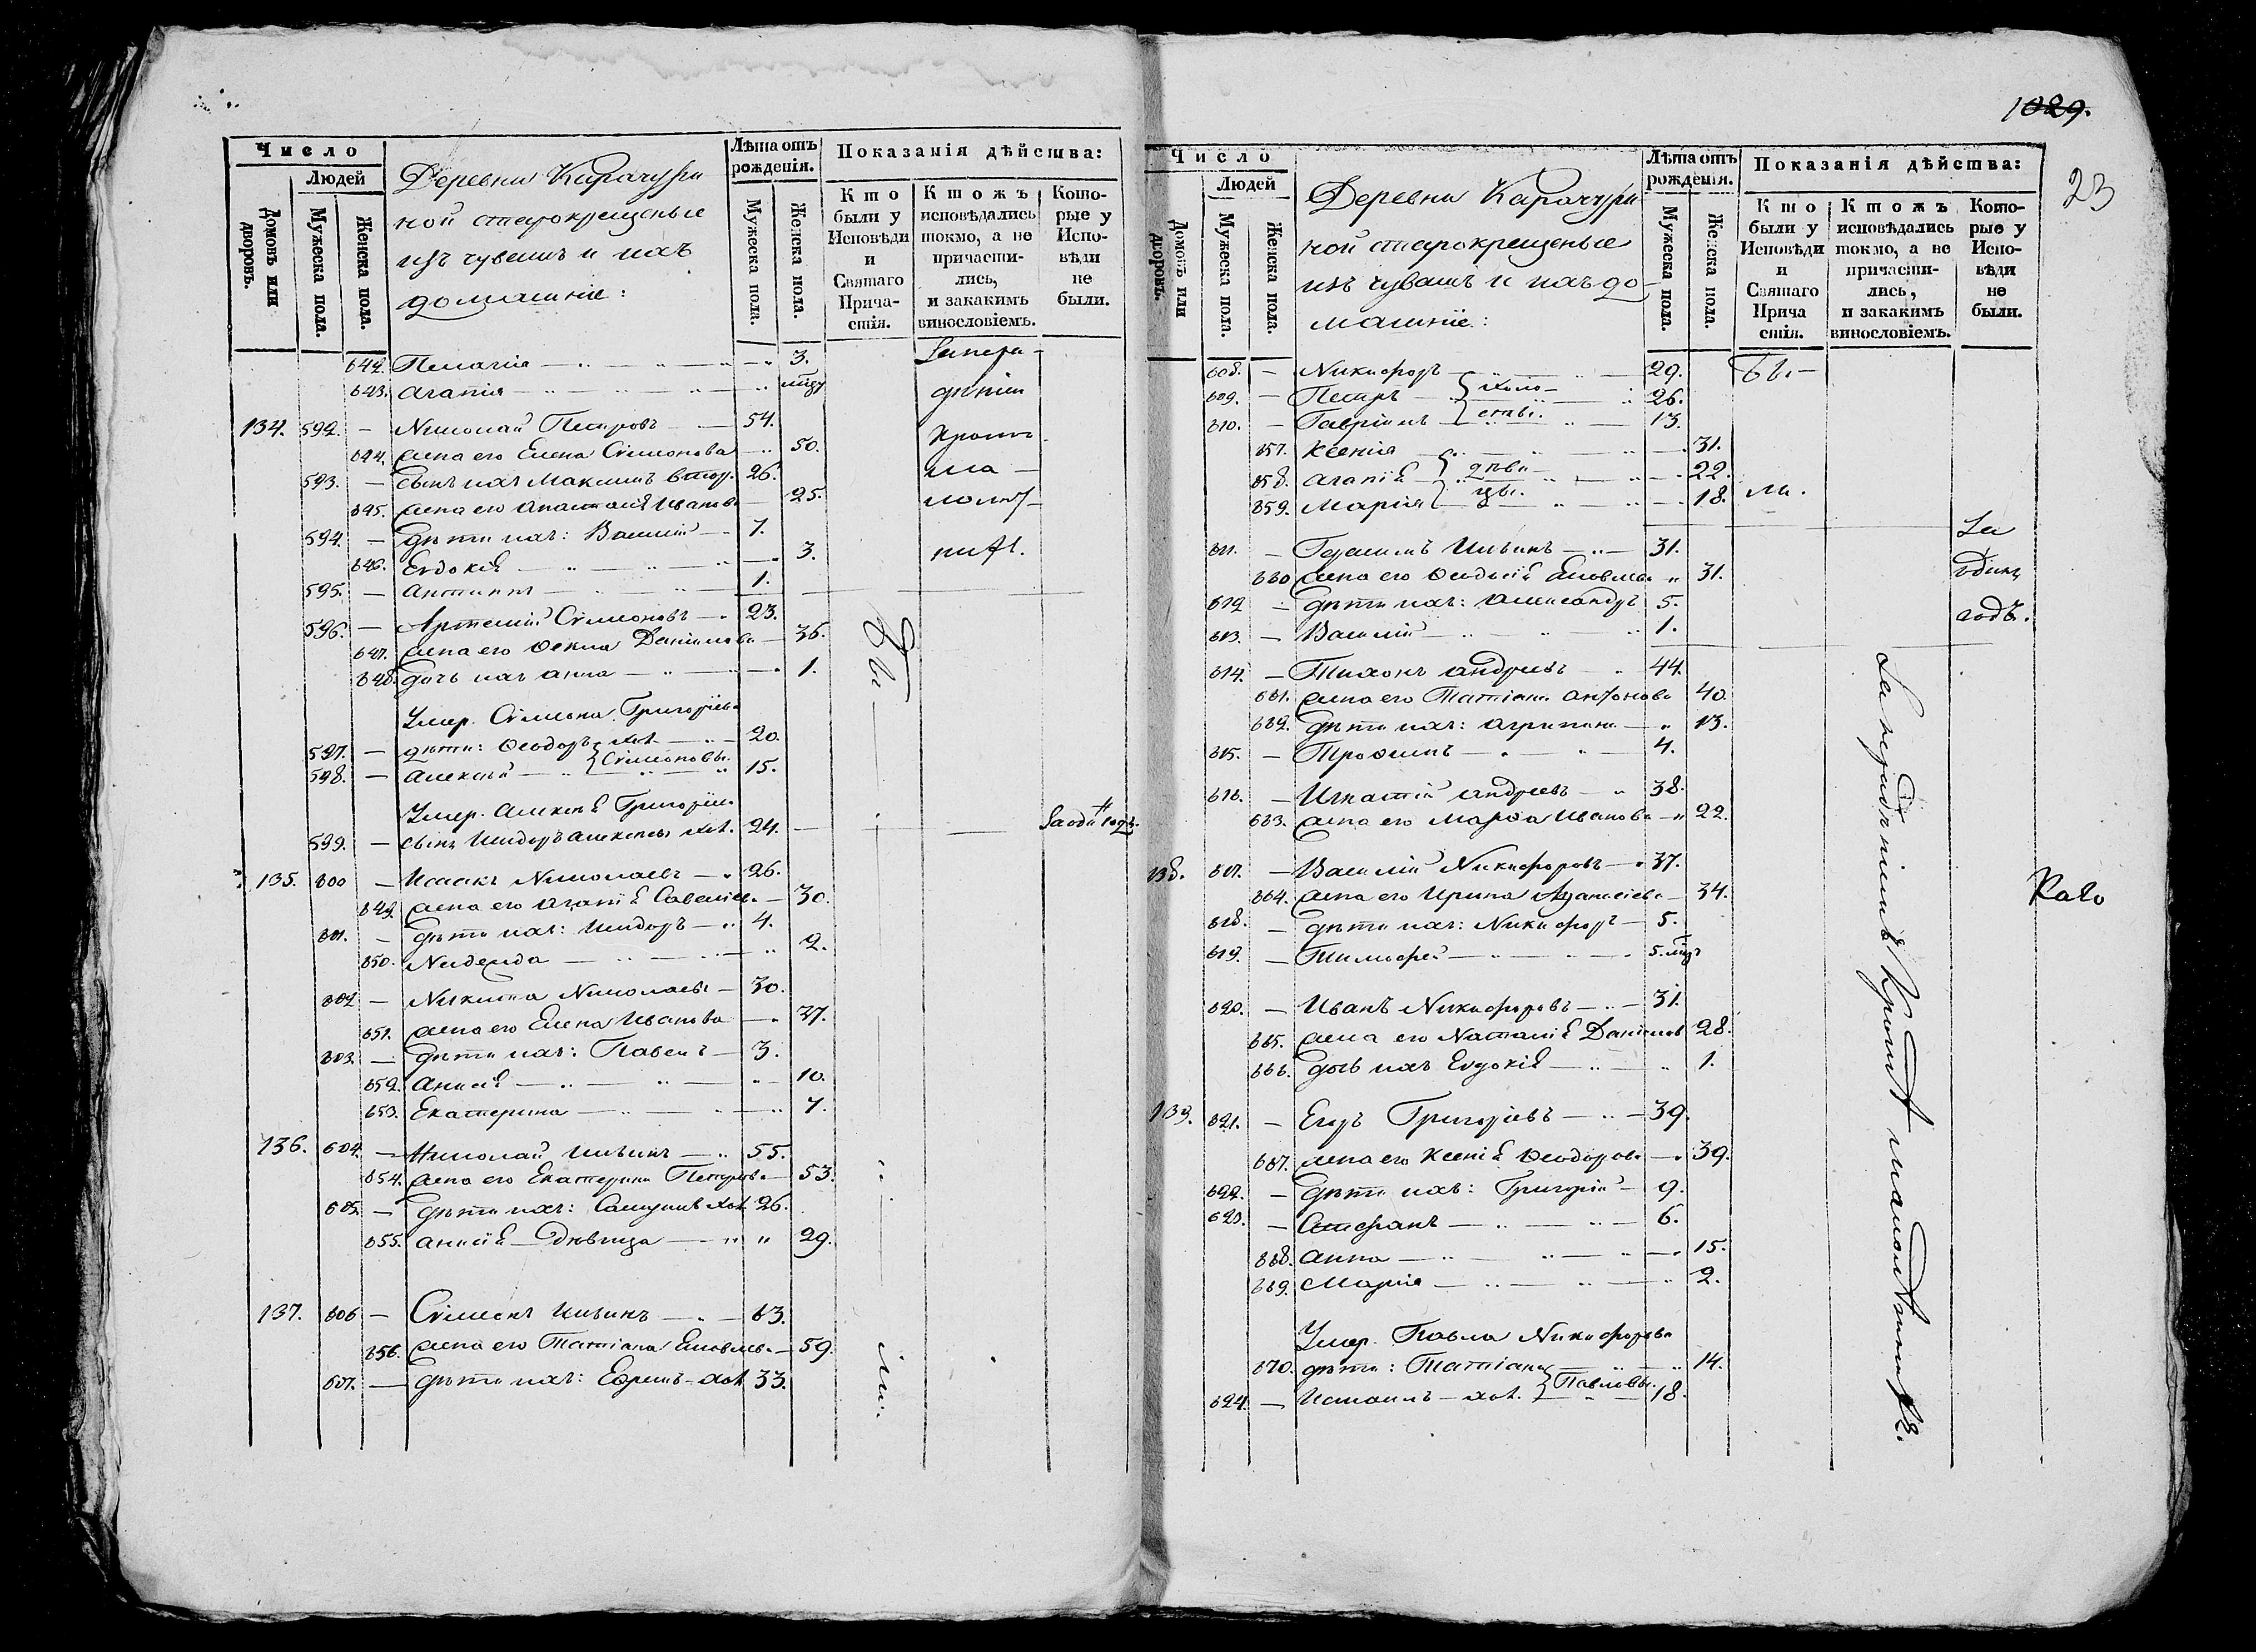 Число
Людей
Домовъ или дворовъ.
Мужеска пола.
Женска пола.
Деревни Карачури
ной старокрещеные
изъ чувашъ и ихъ
домашніе:
Лѣта отъ рожденія.
Мужеска пола.
Женска пола.
Показанія дѣйства:
Кто были у Исповѣди и Святаго Прича-стія.
Ктожъ исповѣдались токмо, а не причасти-лись, и закакимъ винословіемъ.
Кото-рые у Испо-вѣди не были.
642. Пелагіа 3. За нера-
643. Агапія дѣніи
134. 592. — Николай Петровъ 54.
644. жена его Елена Сімеонова 50. Кромѣ
593. — сынъ ихъ Максимъ втор. 26. ма-
645. жена его Анастасія Иванова 25. лолѣт-
594. — дѣти ихъ: Василій 7.
646. Евдокія 3. нихъ.
595. — Антипъ 1.
596. — Артемій Сімеоновъ 23.
647. жена его Ѳекла Данилова 36. Бы
648. дочь ихъ Анна 1.
Умер. Сімеона Григорьева
597. — дѣти: Ѳеодоръ хол. 20.
598. — Алексѣй Сімеоновы. 15.
Умер. Алексѣя Григорьев.
599. — сынъ Исидоръ Алексѣевъ хол. 24. За одинъ годъ.
135. 600 — Исаакъ Николаевъ 26.
649. жена его Агапія Савельева 30.
601. — дѣти ихъ: Исидоръ 4.
650. Надежда 2.
602 — Никита Николаевъ 30.
651. жена его Елена Иванова 37.
603. — дѣти ихъ: Павелъ 3.
652. Анисія 10.
653. Екатерина 7.
136. 604. — Николай Ильинъ 55.
654. жена его Екатерина Петрова 53.
605. — дѣти ихъ: Самуилъ хол. 26.
655. Анисія — дѣвица 29.
137. 606 — Сімеонъ Ильинъ 63.
656. жена его Татіана Яковлева 59. ли.
607. — дѣти ихъ: Ефремъ хол. 33.
1029.
23
Число
Людей
Домовъ или дворовъ.
Мужеска пола.
Женска пола.
Деревни Карачури
ной старокрещеные
изъ чувашъ и ихъ до-
машніе:
Лѣта отъ рожденія.
Мужеска пола.
Женска пола.
Показанія дѣйства:
Кто были у Исповѣди и Святаго Прича стія.
Ктожъ исповѣдались токмо, а не причасти-лись, и закакимъ винословіемъ.
Кото-рые у Испо-вѣди не были.
608. — Никифоръ 29. Бы-
609. — Петръ холо- 26.
610. — Гавріилъ сты. 13.
657. Ксенія 31.
658. Агапія дѣви- 22.
659. Марія цы. 18. ли.
611. — Герасимъ Ильинъ 31. За
660 жена его Ѳеодосія Яковлева 31. одинъ
612 — дѣти ихъ: Александръ 5. годъ.
613. — Василій 1.
614. — Тихонъ Андреевъ 44.
661. жена его Татіана Антонова 40.
662. дѣти ихъ: Агрипина 13.
615. — Трофимъ 4.
616. — Игнатій Андреевъ 38.
663. жена его Марѳа Иванова 22.
138. 617. — Василій Никифоровъ 37.
664. жена его Ирина Аѳанасіева 34.
618. — дѣти ихъ: Никифоръ 5.
619. — Тимофей 5. мцъ
620. — Иванъ Никифоровъ 31.
665. жена его Наталія Данилов 28.
666. дочь ихъ Евдокія 1.
139. 621. — Егоръ Григорьевъ 39.
667. жена его Ксенія Ѳеодорова 39.
622. — дѣти ихъ: Григорій 9.
623. — Стефанъ 6.
668. Анна 15.
669. Марія 2.
Умер. Павла Никифорова
670. дѣти: Татіана 14.
624. — Исаакъ — хол. Павловы. 18.
За нерадѣніемъ Кромѣ малолѣтнихъ.